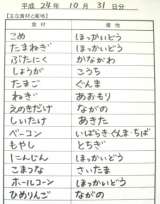 平成 24年 10月 31日分
【主な食材と産地】
食材 産地
こめ ほっかいどう
たまねぎ ほっかいどう
ぶたにく かながわ
しょうが こうち
たまご ぐんま
ねぎ あおもり
えのきだけ ながの
しいたけ あきた
ベーコン いばらき・ぐんま・ちば
もやし とちぎ
にんじん ほっかいどう
こまつな さいたま
ホールコーン ほっかいどう
ひめりんご ながの